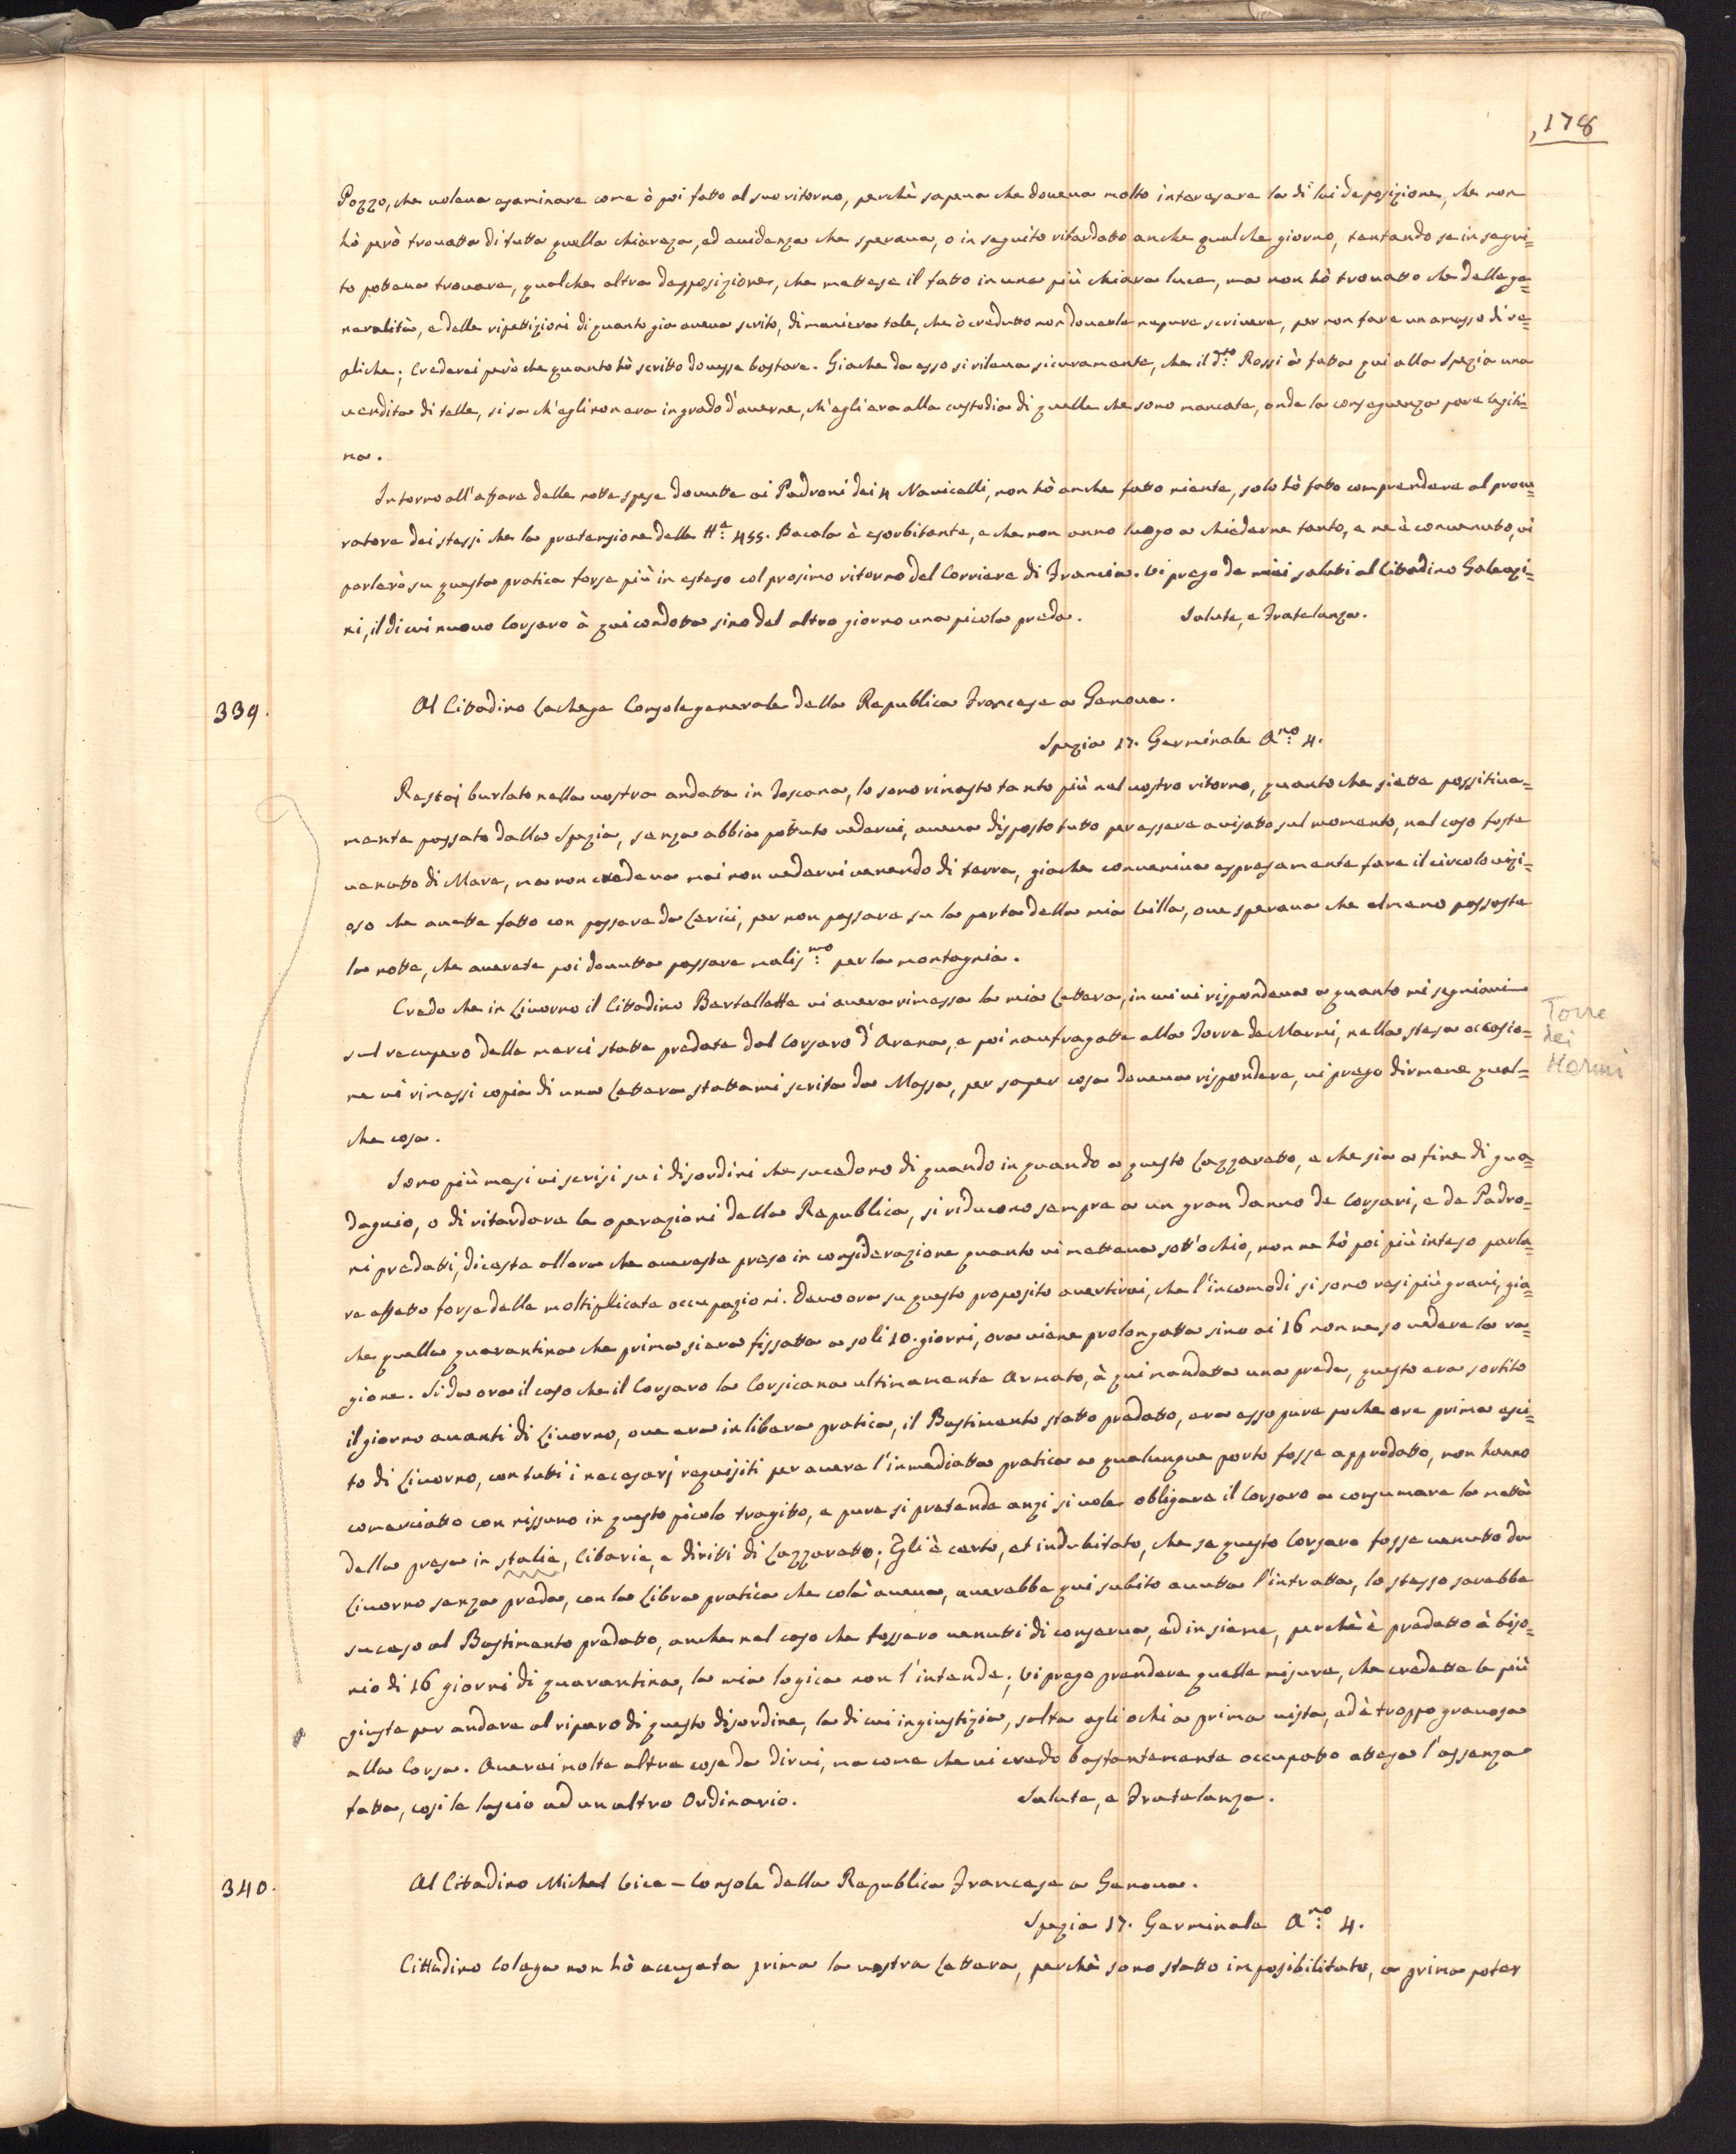 178
Pozzo, che voleva esaminare come ò poi fatto al suo ritorno, perchè sapeva che doveva molto interesare la di lui deposizione, che non
hò però trovatta di tutta quella chiareza, ed evidenza che sperava, o in seguito ritardatto anche qualche giorno, tentando se in segui=
to potteva trovare, qualche altra depposizione, che mettese il fatto in una più chiara luce, ma non hò trovatto che delle ge=
neralità, e delle ripettizioni di quanto gia aveva scrito, di maniera tale, che ò credutto non doverle nepure scrivere, per non fare un amasso di re=
pliche; Crederei però che quanto hò scritto dovesse bastare. Giache da esso si rileva sicuramente, che il d.to Rossi à fatta qui alla Spezia una
vendita di telle, si sa ch'egli non era in grado d'averne, ch'egli era alla custodia di quelle che sono mancate, onde la conseguenza pare legiti=
ma.
Intorno all'affare delle notte spese dovutte ai Padroni dei 4 Navicelli, non hò anche fatto niente, solo hò fatto comprendere al procu=
ratore dei stessi che la pretensione delle tt.e 455. Bacola è esorbitante, e che non anno luogo a chiederne tanto, e ne è convenutto, vi
parlerò su questa pratica forse più in esteso col prosimo ritorno del Corriere di Francia. Vi prego de miei saluti al Cittadino Galeazi=
ni, il di cui nuovo Corsaro à qui condotta sino del altro giorno una picola preda. Salute, e Fratelanza.
339. Al Cittadino Lachege Console generale della Republica Francese a Genova.
Spezia 17. Germinale A.no 4.
Restai burlato nella vostra andatta in Toscana, lo sono rimasto tanto più nel vostro ritorno, quanto che siette possitiva=
mente passato dalla Spezia, senza abbia pottuto vedervi, aveva disposto tutto per essere avisatto sul momento, nel caso foste
venutto di Mare, ma non credeva mai non vedervi venendo di terra, giache conveniva espresamente fare il circolo vizi=
oso che avette fatto con passare da Lerici, per non passare su la porta della mia Villa, ove sperava che almeno passaste
la notte, che averete poi dovutta passare malis.mo per la montagnia.
Credo che in Livorno il Cittadino Bertellette vi avera rimessa la mia Lettera, in cui vi rispondeva a quanto mi segniavi
sul recupero delle merci statte predate dal Corsaro d'Arena, e poi naufragatte alla Torre de Marmi, nella stesa occasio=
ne vi rimessi copia di una Lettera stattami scrita da Massa, per saper cosa doveva rispondere, vi prego dirmene qual=
che cosa.
Torre
dei
Marmi
Sono più mesi vi scrisi sui disordini che sucedono di quando in quando a questo Lazzaretto, e che sia a fine di gua=
dagnio, o di ritardare le operazioni della Republica, si riducono sempre a un gran danno de Corsari, e de Padro=
ni predatti, diceste allora che avereste preso in considerazione quanto vi metteva sott'ochio, non ne hò poi più inteso parla=
re effetto forse delle moltiplicate occupazioni. Devo ora su questo proposito avertirvi, che l'incomodi si sono resi più gravi, gia=
che quella quarantina che prima si era fissatta a soli 10. giorni, ora viene prolongatta sino ai 16 non ne so vedere la ra=
gione. Si da ora il caso che il Corsaro la Corsicana ultimamente Armato, à qui mandatta una preda, questo era sortito
il giorno avanti di Livorno, ove era in libera pratica, il Bastimento statto predatto, era esso pure poche ore prima esci=
to di Livorno, con tutti i necesarj requisiti per avere l'inmediatta pratica a qualunque porto fosse approdatto, non hanno
comerciatto con nissuno in questo picolo tragitto, e pure si pretende anzi si vole obligare il Corsaro a consumare la mettà
della presa in stalie, Cibarie, e diritti di Lazzaretto; Egli è certo, et indubitato, che se questo Corsaro fosse venutto da
Livorno senza preda, con la Libra pratica che colà aveva, averebbe qui subito avutta l'intratta, lo stesso sarebbe
suceso al Bastimento predatto, anche nel caso che fossero venutti di conserva, ed insieme, perchè è predatto à biso=
nio di 16 giorni di quarantina, la mia logica non l'intende; Vi prego prendere quelle misure, che credette le più
giuste per andare al riparo di questo disordine, la di cui ingiustizia, salta agli ochi a prima vista, ed è troppo gravosa
alla Corsa. Averei molte altre cose da dirvi, ma come che vi credo bastantemente occupatto attesa l'assenza
fatta, cosi le lascio ad un altro Ordinario. Salute, e Fratelanza.
340. Al Cittadino Michel Vice-Console della Republica Francese a Genova.
Spezia 17. Germinale A.no 4.
Cittadino Colega non hò accusata prima la vostra Lettera, perchè sono statto imposibilitato, a prima poter